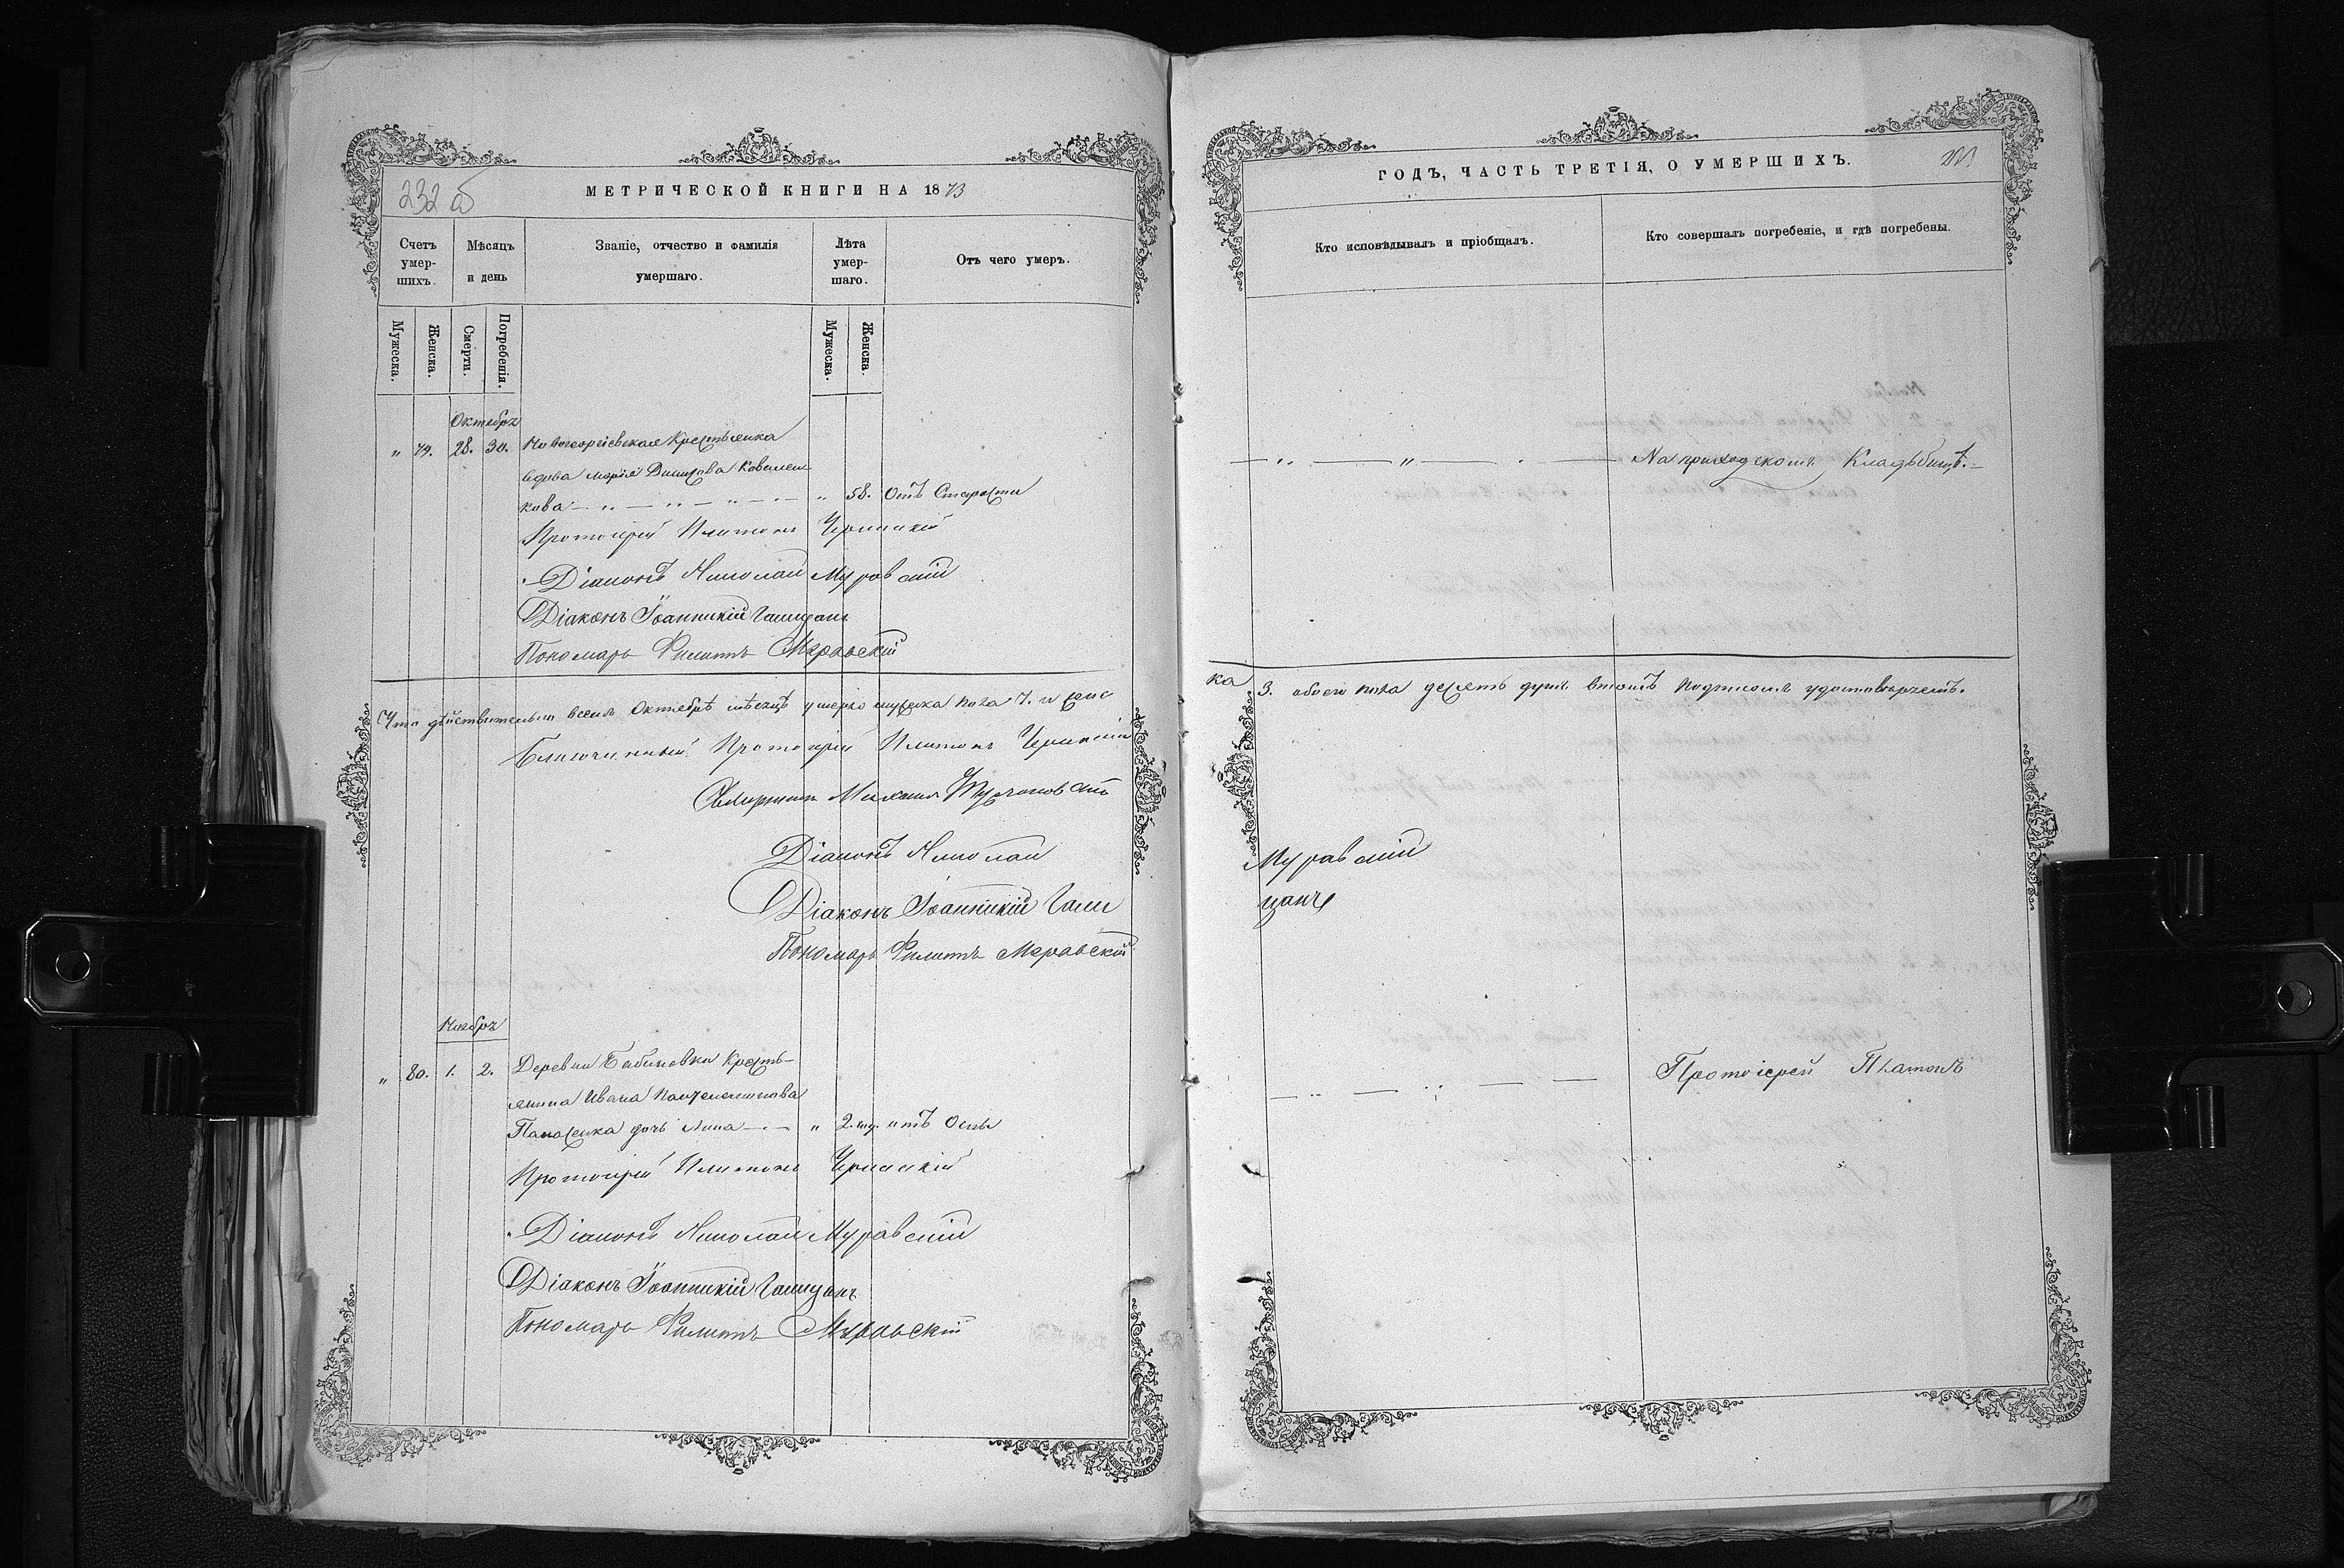 232 об
МЕТРИЧЕСКОЙ КНИГИ НА 1873
Счетъ умер-шихъ.
Мѣсяцъ и день
Званіе, отчество и фамилія умершаго.
Лѣта умер-шаго.
Отъ чего умеръ.
Мужеска.
Женска.
Смерти.
Погребенія.
Мужеска.
Женска.
Октября
" 79. 28. 30. Новогеоргіевская Крестьянка
вдова Марія Ковален
кова " 58. Отъ Старости
Протоіерей Платонъ
Діаконъ Николай Муравскій
Діаконъ Іоанникій
Пономарь Филиппъ Муравскій
Что дѣйствительно всемъ Октябрѣ мѣсяцѣ умерло мужеска пола 7. и женс
Благочинный Протоіерей Платонъ
Діаконъ Николай
Діаконъ Іоанникій
Пономарь Филиппъ Муравскій
Ноября
" 80. 1. 2. Деревни Крестьянина
Ивана
дочь Анна " 2. год. отъ Оспы
Протоіерей Платонъ
Діаконъ Николай Муравскій
Діаконъ Іоанникій
Пономарь Филиппъ Муравскій
ГОДЪ, ЧАСТЬ ТРЕТІЯ, О УМЕРШИХЪ.
Кто исповѣдывалъ и пріобщалъ.
Кто совершалъ погребеніе, и гдѣ погребены.
На приходскомъ Кладбищѣ.
ка 3. обоего пола десять душъ втомъ подписомъ удостовѣряемъ.
Муравскій
Протоіерей Платонъ